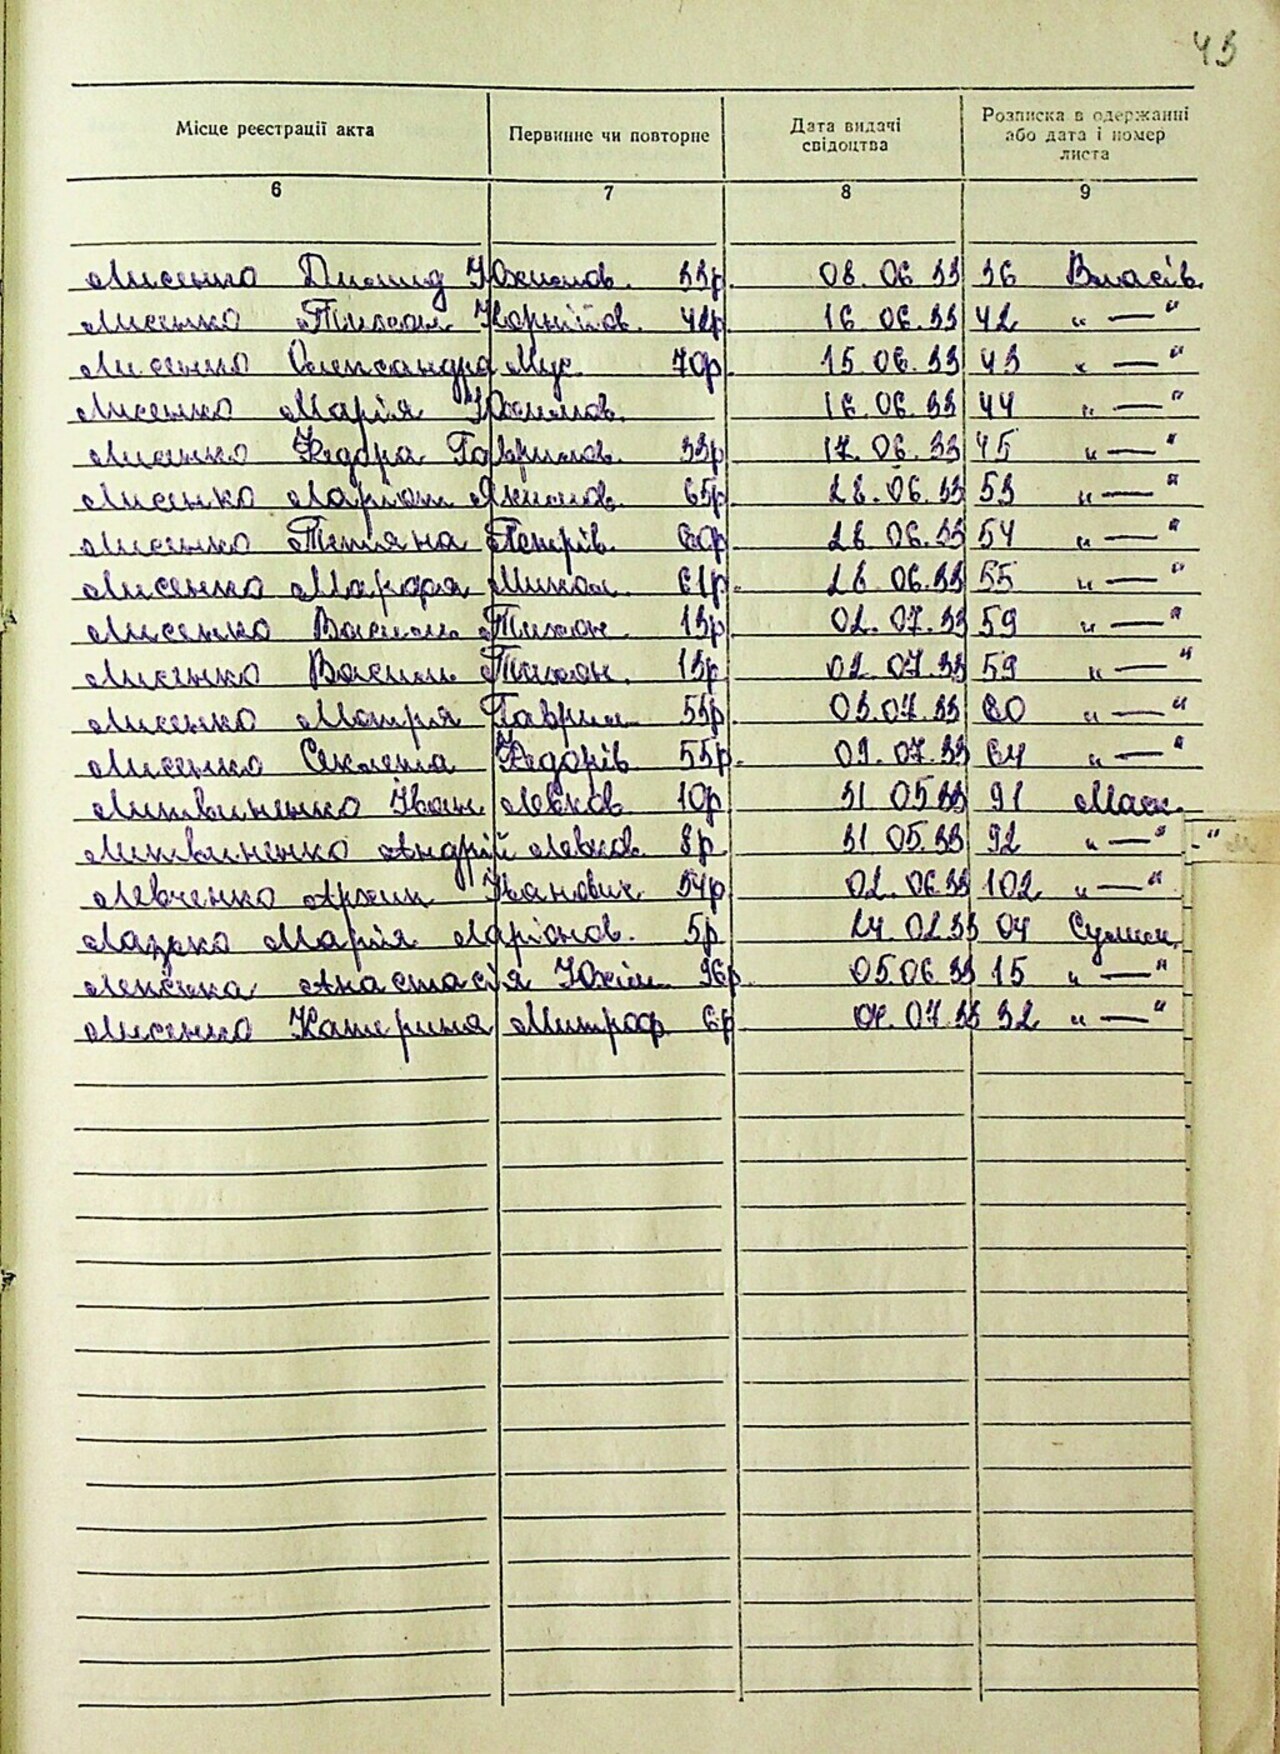 43
Місце реєстрації акта
Первинне чи повторне
Дата видачі свідоцтва
Розписка в одержанні або дата і номер листа
6 7 8 9
Лисенко Дмид Юхимов. 33р. 08.06.33 36 Власів.
Лисенко Тихон Корнійов. 42р. 16.06.33 42 " — "
Лисенко Олександра Мус. 70р. 15.06.33 43 " — "
Лисенко Марія Юхимов. 16.06.33 44 " — "
Лисенко Федора Гаврилов. 33р. 17.06.33 45 " — "
Лисенко Ларіон Якимов. 65р. 28.06.33 53 " — "
Лисенко Тетяна Петрів. 60р. 28.06.33 54 " — "
Лисенко Макара Микол. 61р. 28.06.33 55 " — "
Лисенко Василь Тихон. 13р. 02.07.33 59 " — "
Лисенко Василь Тихон. 13р. 02.07.33 59 " — "
Лисенко Мотря Гаврил. 53р. 03.07.33 60 " — "
Лисенко Секлета Федорів 55р. 09.07.33 64 " — "
Литвиненко Іван Левков. 10р. 31.05.33 91 Маск.
Литвиненко Андрій Левков. 8р. 31.05.33 92 " — "
Левченко Архип Іванович 54р. 02.06.33 102 " — "
Марія Ларіонов. 5р. 24.02.33 04
Анастасія Юхим. 36р. 05.06.33 15 " — "
Лисенко Катерина Митроф. 6р. 07.33 32 " — "